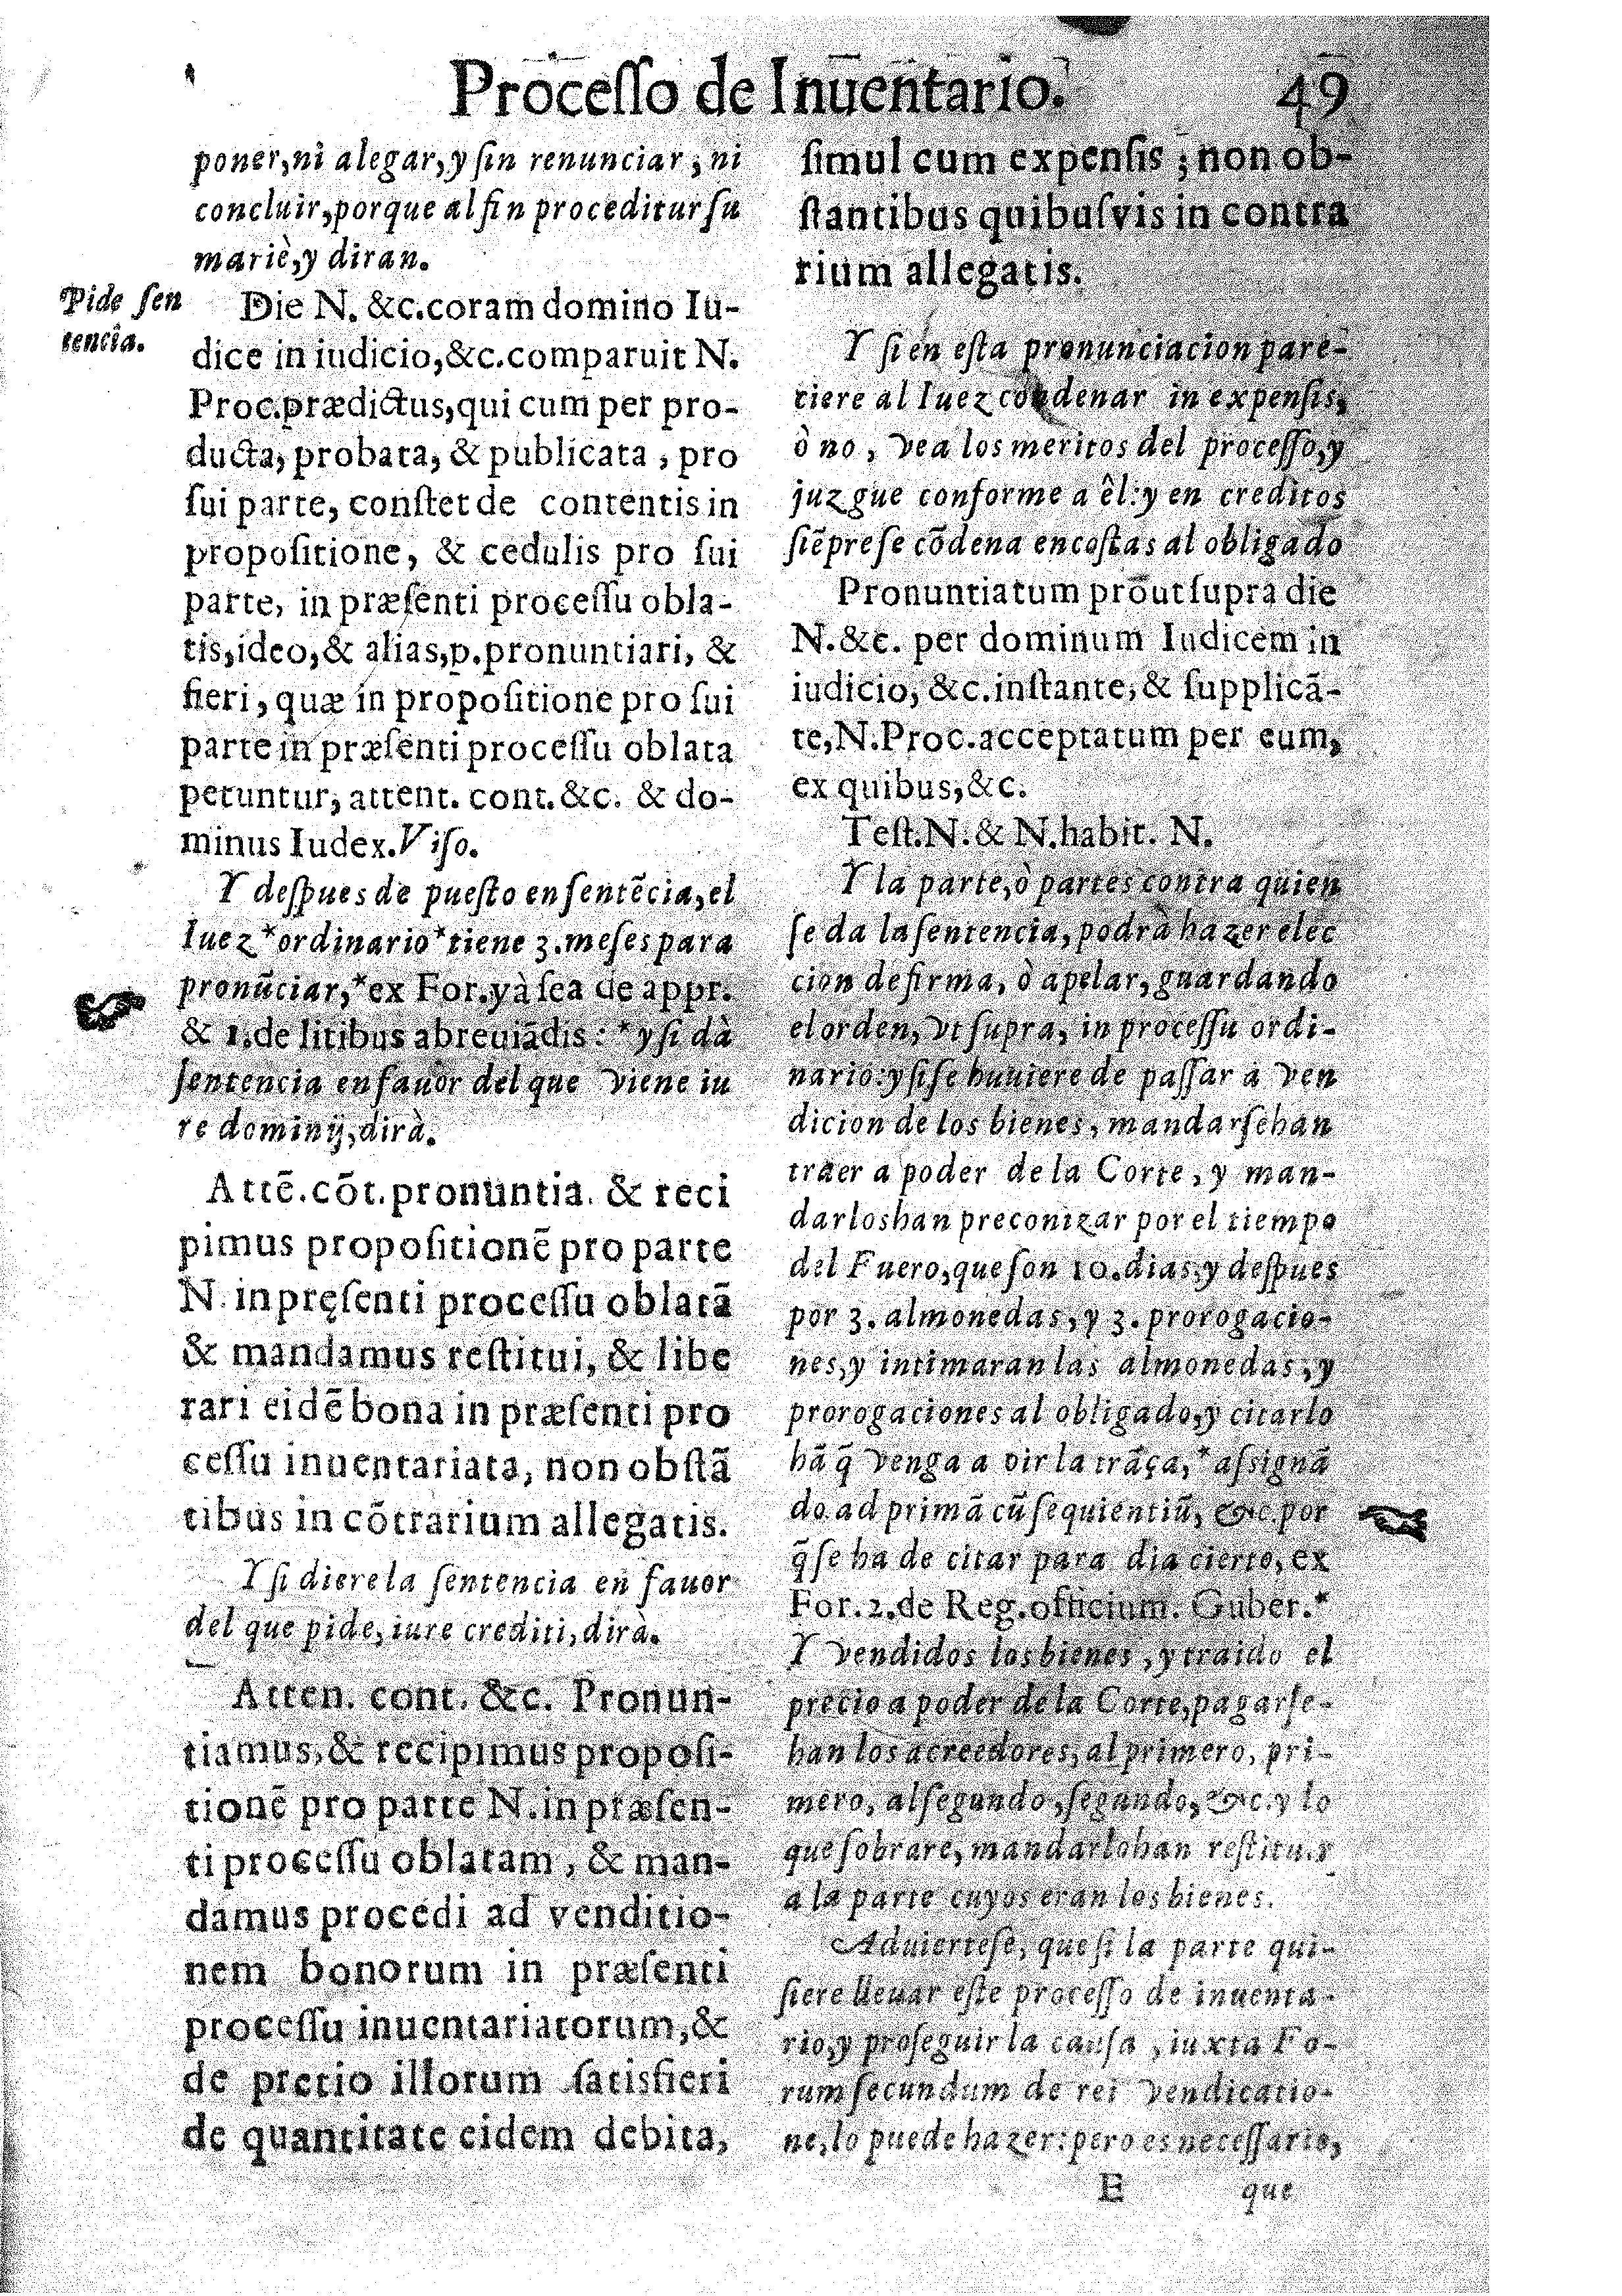 Proceſſo de Inuentario. 49
poner, ni alegar, y ſin renunciar, ni
concluir, porque al fin proceditur ſu
mariè, y diran.
Pide ſen
tencia.
Die N. &c. coram domino Iu-
dice in iudicio, &c. comparuit N.
Proc. prædictus, qui cum per pro-
ducta, probata, & publicata, pro
ſui parte, conſtet de contentis in
propoſitione, & cedulis pro ſui
parte, in præſenti proceſſu obla-
tis, ideo, & alias, p. pronuntiari, &
fieri, quæ in propoſitione pro ſui
parte in præſenti proceſſu oblata
petuntur, attent. cont. &c. & do-
minus Iudex. Viſo.
Y deſpues de pueſto en ſentẽcia, el
Iuez *ordinario* tiene 3. meſes para
pronũciar, *ex For. yà ſea de appr.
& 1. de litibus abreuiãdis: *y ſi dà
ſentencia en fauor del que viene iu
re dominij, dirà.
Attẽ. cõt. pronuntia. & reci
pimus propoſitionẽ pro parte
N. in pręſenti proceſſu oblatã
& mandamus reſtitui, & libe
rari eidẽ bona in præſenti pro
ceſſu inuentariata, non obſtã
tibus in cõtrarium allegatis.
Y ſi diere la ſentencia en fauor
del que pide, iure crediti, dirà.
Atten. cont. &c. Pronun-
tiamus, & recipimus propoſi-
tionẽ pro parte N. in præſen-
ti proceſſu oblatam, & man-
damus procedi ad venditio-
nem bonorum in præſenti
proceſſu inuentariatorum, &
de pretio illorum ſatisfieri
de quantitate eidem debita,
ſimul cum expenſis; non ob-
ſtantibus quibuſvis in contra
rium allegatis.
Y ſi en eſta pronunciacion pare-
ciere al Iuez condenar in expenſis,
ò no, vea los meritos del proceſſo, y
juzgue conforme a êl: y en creditos
ſiẽpre ſe cõdena en coſtas al obligado
Pronuntiatum proūt ſupra die
N. &c. per dominum Iudicem in
iudicio, &c. inſtante, & ſupplicã-
te, N. Proc. acceptatum per eum,
ex quibus, &c.
Teſt. N. & N. habit. N.
Y la parte, ò partes contra quien
ſe da la ſentencia, podrà hazer elec
cion de firma, ò apelar, guardando
el orden, vt ſupra, in proceſſu ordi-
nario: y ſi ſe huuiere de paſſar a ven
dicion de los bienes, mandarſehan
traer a poder de la Corte, y man-
darloshan preconizar por el tiempo
del Fuero, que ſon 10. dias, y deſpues
por 3. almonedas, y 3. prorogacio-
nes, y intimaran las almonedas, y
prorogaciones al obligado, y citarlo
hã q̃ venga a oir la trãça, *aſsignã
do ad primã cũ ſequientiũ, &c. por
q̃ ſe ha de citar para dia cierto, ex
For. 2. de Reg. officium. Guber.*
Y vendidos los bienes, y traido el
precio a poder de la Corte, pagarſe-
han los acreedores, al primero, pri-
mero, al ſegundo, ſegundo, &c. y lo
que ſobrare, mandarlohan reſtituir
a la parte cuyos eran los bienes.
Aduierteſe, que ſi la parte qui-
ſiere lleuar eſte proceſſo de inuenta-
rio, y proſeguir la cauſa, iuxta Fo-
rum ſecundum de rei vendicatio-
ne, lo puede hazer: pero es neceſſario,
E que